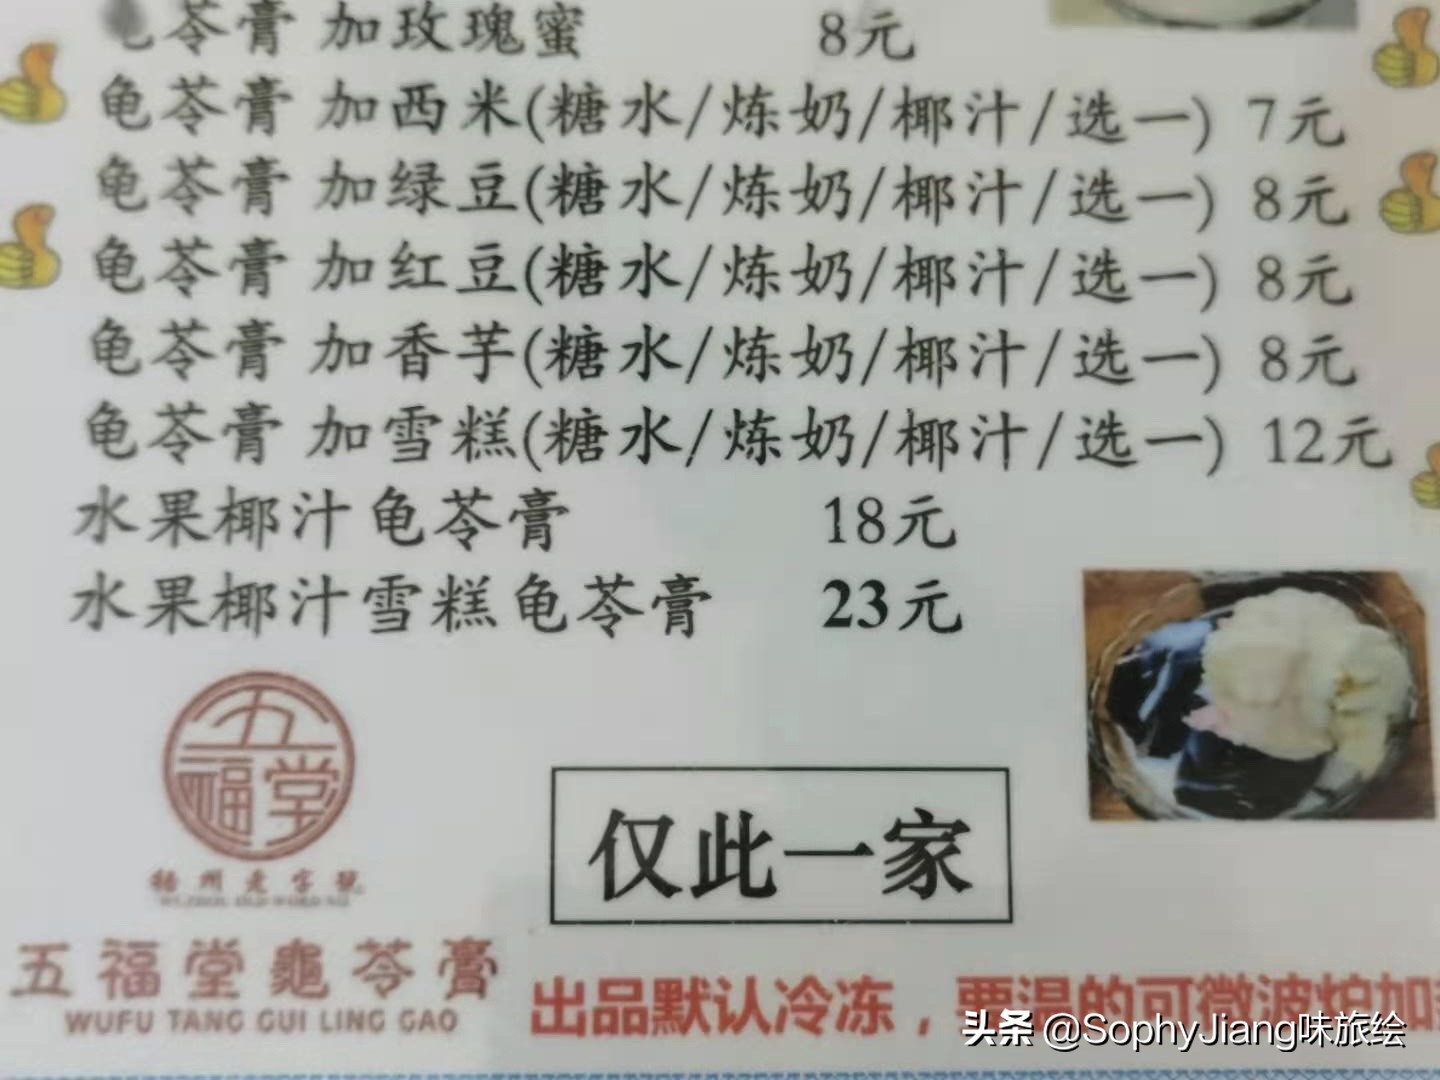 龟苓膏 加玫瑰蜜 8元
龟苓膏 加西米(糖水/炼奶/椰汁/选一) 7元
龟苓膏 加绿豆(糖水/炼奶/椰汁/选一) 8元
龟苓膏 加红豆(糖水/炼奶/椰汁/选一) 8元
龟苓膏 加香芋(糖水/炼奶/椰汁/选一) 8元
龟苓膏 加雪糕(糖水/炼奶/椰汁/选一) 12元
水果椰汁龟苓膏 18元
水果椰汁雪糕龟苓膏 23元
五福堂
老字號
仅此一家
五福堂龜苓膏
WUFU TANG GUI LING GAO
出品默认冷冻，要温的可微波炉加
头条 @SophyJiang味旅绘